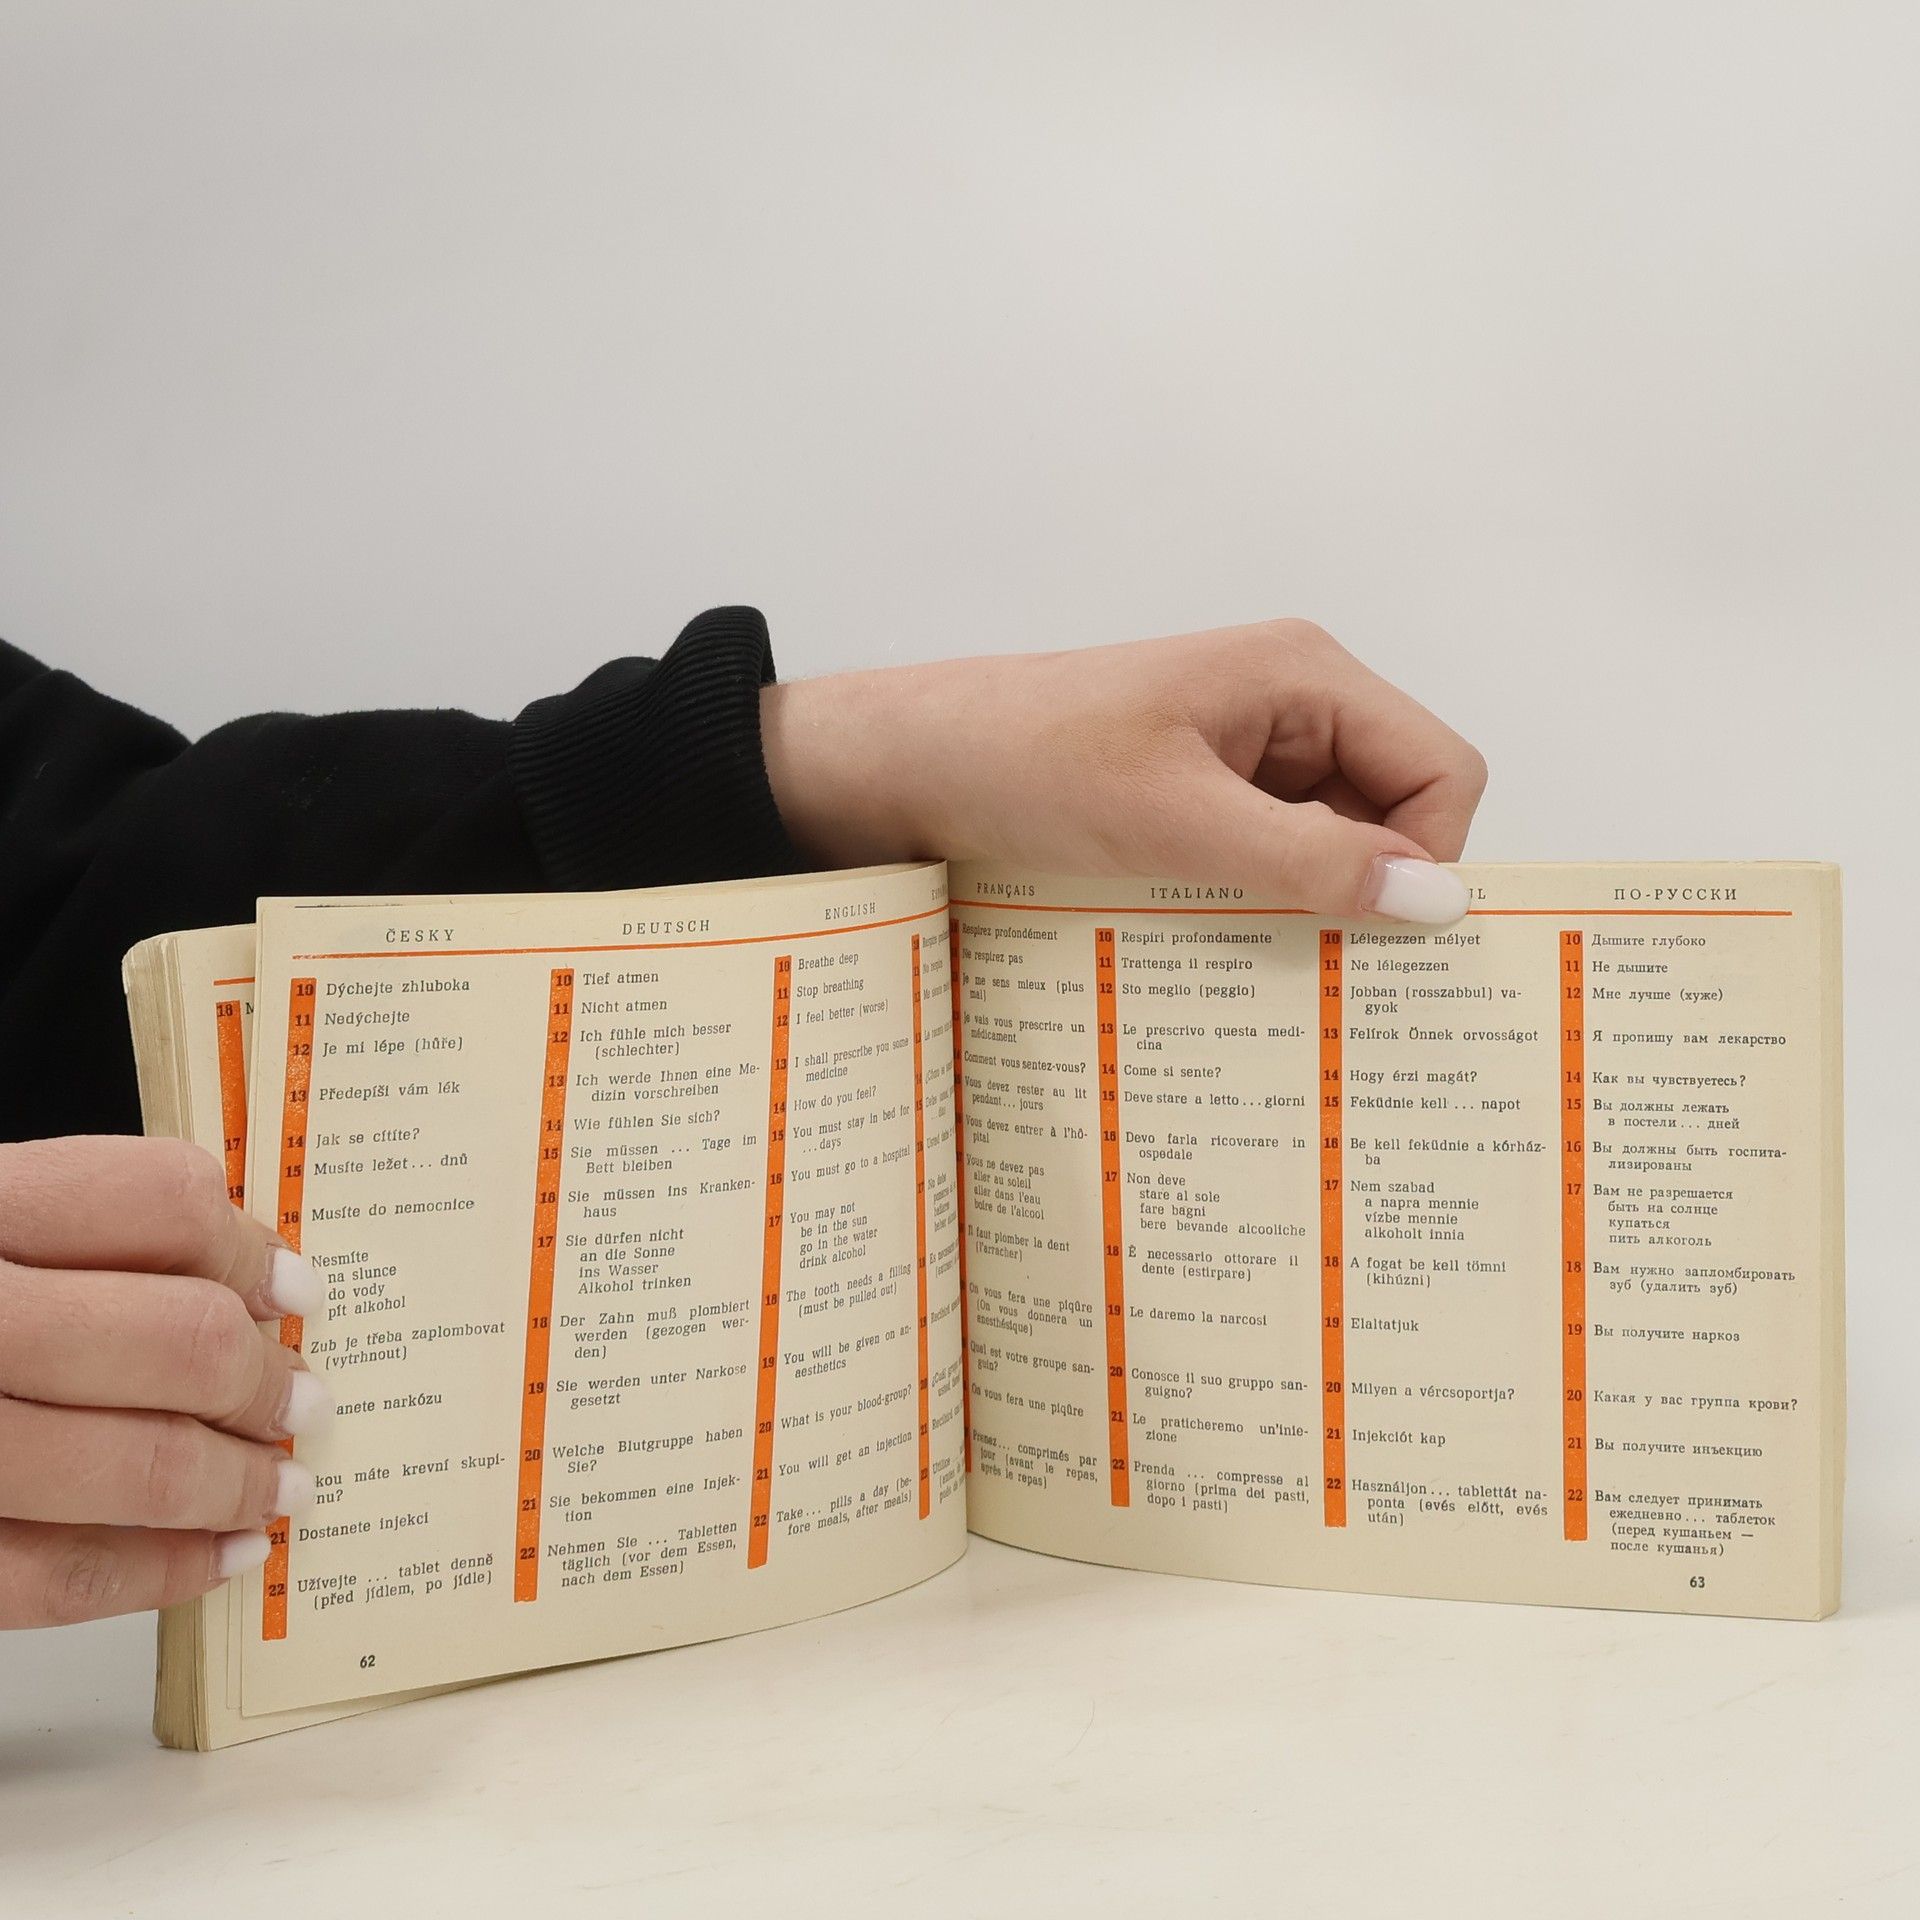 ČESKY
10 Dýchejte zhluboka
11 Nedýchejte
12 Je mi lépe (hůře)
13 Předepíši vám lék
14 Jak se cítíte?
15 Musíte ležet... dnů
16 Musíte do nemocnice
Nesmíte
na slunce
do vody
pít alkohol
Zub je třeba zaplombovat
(vytrhnout)
anete narkózu
kou máte krevní skupi-
nu?
21 Dostanete injekci
22 Užívejte ... tablet denně
(před jídlem, po jídle)
62
DEUTSCH
10 Tief atmen
11 Nicht atmen
12 Ich fühle mich besser
(schlechter)
13 Ich werde Ihnen eine Me-
dizin vorschreiben
14 Wie fühlen Sie sich?
15 Sie müssen ... Tage im
Bett bleiben
16 Sie müssen ins Kranken-
haus
17 Sie dürfen nicht
an die Sonne
ins Wasser
Alkohol trinken
18 Der Zahn muß plombiert
werden (gezogen wer-
den)
19 Sie werden unter Narkose
gesetzt
20 Welche Blutgruppe haben
Sie?
21 Sie bekommen eine Injek-
tion
22 Nehmen Sie ... Tabletten
täglich (vor dem Essen,
nach dem Essen)
ENGLISH
10 Breathe deep
11 Stop breathing
12 I feel better (worse)
13 I shall prescribe you some
medicine
14 How do you feel?
15 You must stay in bed for
...days
16 You must go to a hospital
17 You may not
be in the sun
go in the water
drink alcohol
18 The tooth needs a filling
(must be pulled out)
19 You will be given an an-
aesthetics
20 What is your blood-group?
21 You will get an injection
22 Take... pills a day (be-
fore meals, after meals)
FRANÇAIS
Respirez profondément
Ne respirez pas
Je me sens mieux (plus
mal)
Je vais vous prescrire un
médicament
Comment vous sentez-vous?
Vous devez rester au lit
pendant... jours
Vous devez entrer à l'hô-
pital
Vous ne devez pas
aller au soleil
aller dans l'eau
boire de l'alcool
Il faut plomber la dent
(l'arracher)
On vous fera une piqûre
(On vous donnera un
anesthésique)
Quel est votre groupe san-
guin?
On vous fera une piqûre
Prenez... comprimés par
jour (avant le repas,
après le repas)
ITALIANO
10 Respiri profondamente
11 Trattenga il respiro
12 Sto meglio (peggio)
13 Le prescrivo questa medi-
cina
14 Come si sente?
15 Deve stare a letto... giorni
16 Devo farla ricoverare in
ospedale
17 Non deve
stare al sole
fare bagni
bere bevande alcooliche
18 È necessario ottorare il
dente (estirpare)
19 Le daremo la narcosi
20 Conosce il suo gruppo san-
guigno?
21 Le praticheremo un'inie-
zione
22 Prenda ... compresse al
giorno (prima dei pasti,
dopo i pasti)
UL
10 Lélegezzen mélyet
11 Ne lélegezzen
12 Jobban (rosszabbul) va-
gyok
13 Felírok Önnek orvosságot
14 Hogy érzi magát?
15 Feküdnie kell ... napot
16 Be kell feküdnie a kórház-
ba
17 Nem szabad
a napra mennie
vízbe mennie
alkoholt innia
18 A fogat be kell tömni
(kihúzni)
19 Elaltatjuk
20 Milyen a vércsoportja?
21 Injekciót kap
22 Használjon... tablettát na-
ponta (evés előtt, evés
után)
ПО-РУССКИ
10 Дышите глубоко
11 Не дышите
12 Мне лучше (хуже)
13 Я пропишу вам лекарство
14 Как вы чувствуетесь?
15 Вы должны лежать
в постели... дней
16 Вы должны быть госпита-
лизированы
17 Вам не разрешается
быть на солнце
купаться
пить алкоголь
18 Вам нужно запломбировать
зуб (удалить зуб)
19 Вы получите наркоз
20 Какая у вас группа крови?
21 Вы получите инъекцию
22 Вам следует принимать
ежедневно... таблеток
(перед кушаньем —
после кушанья)
63